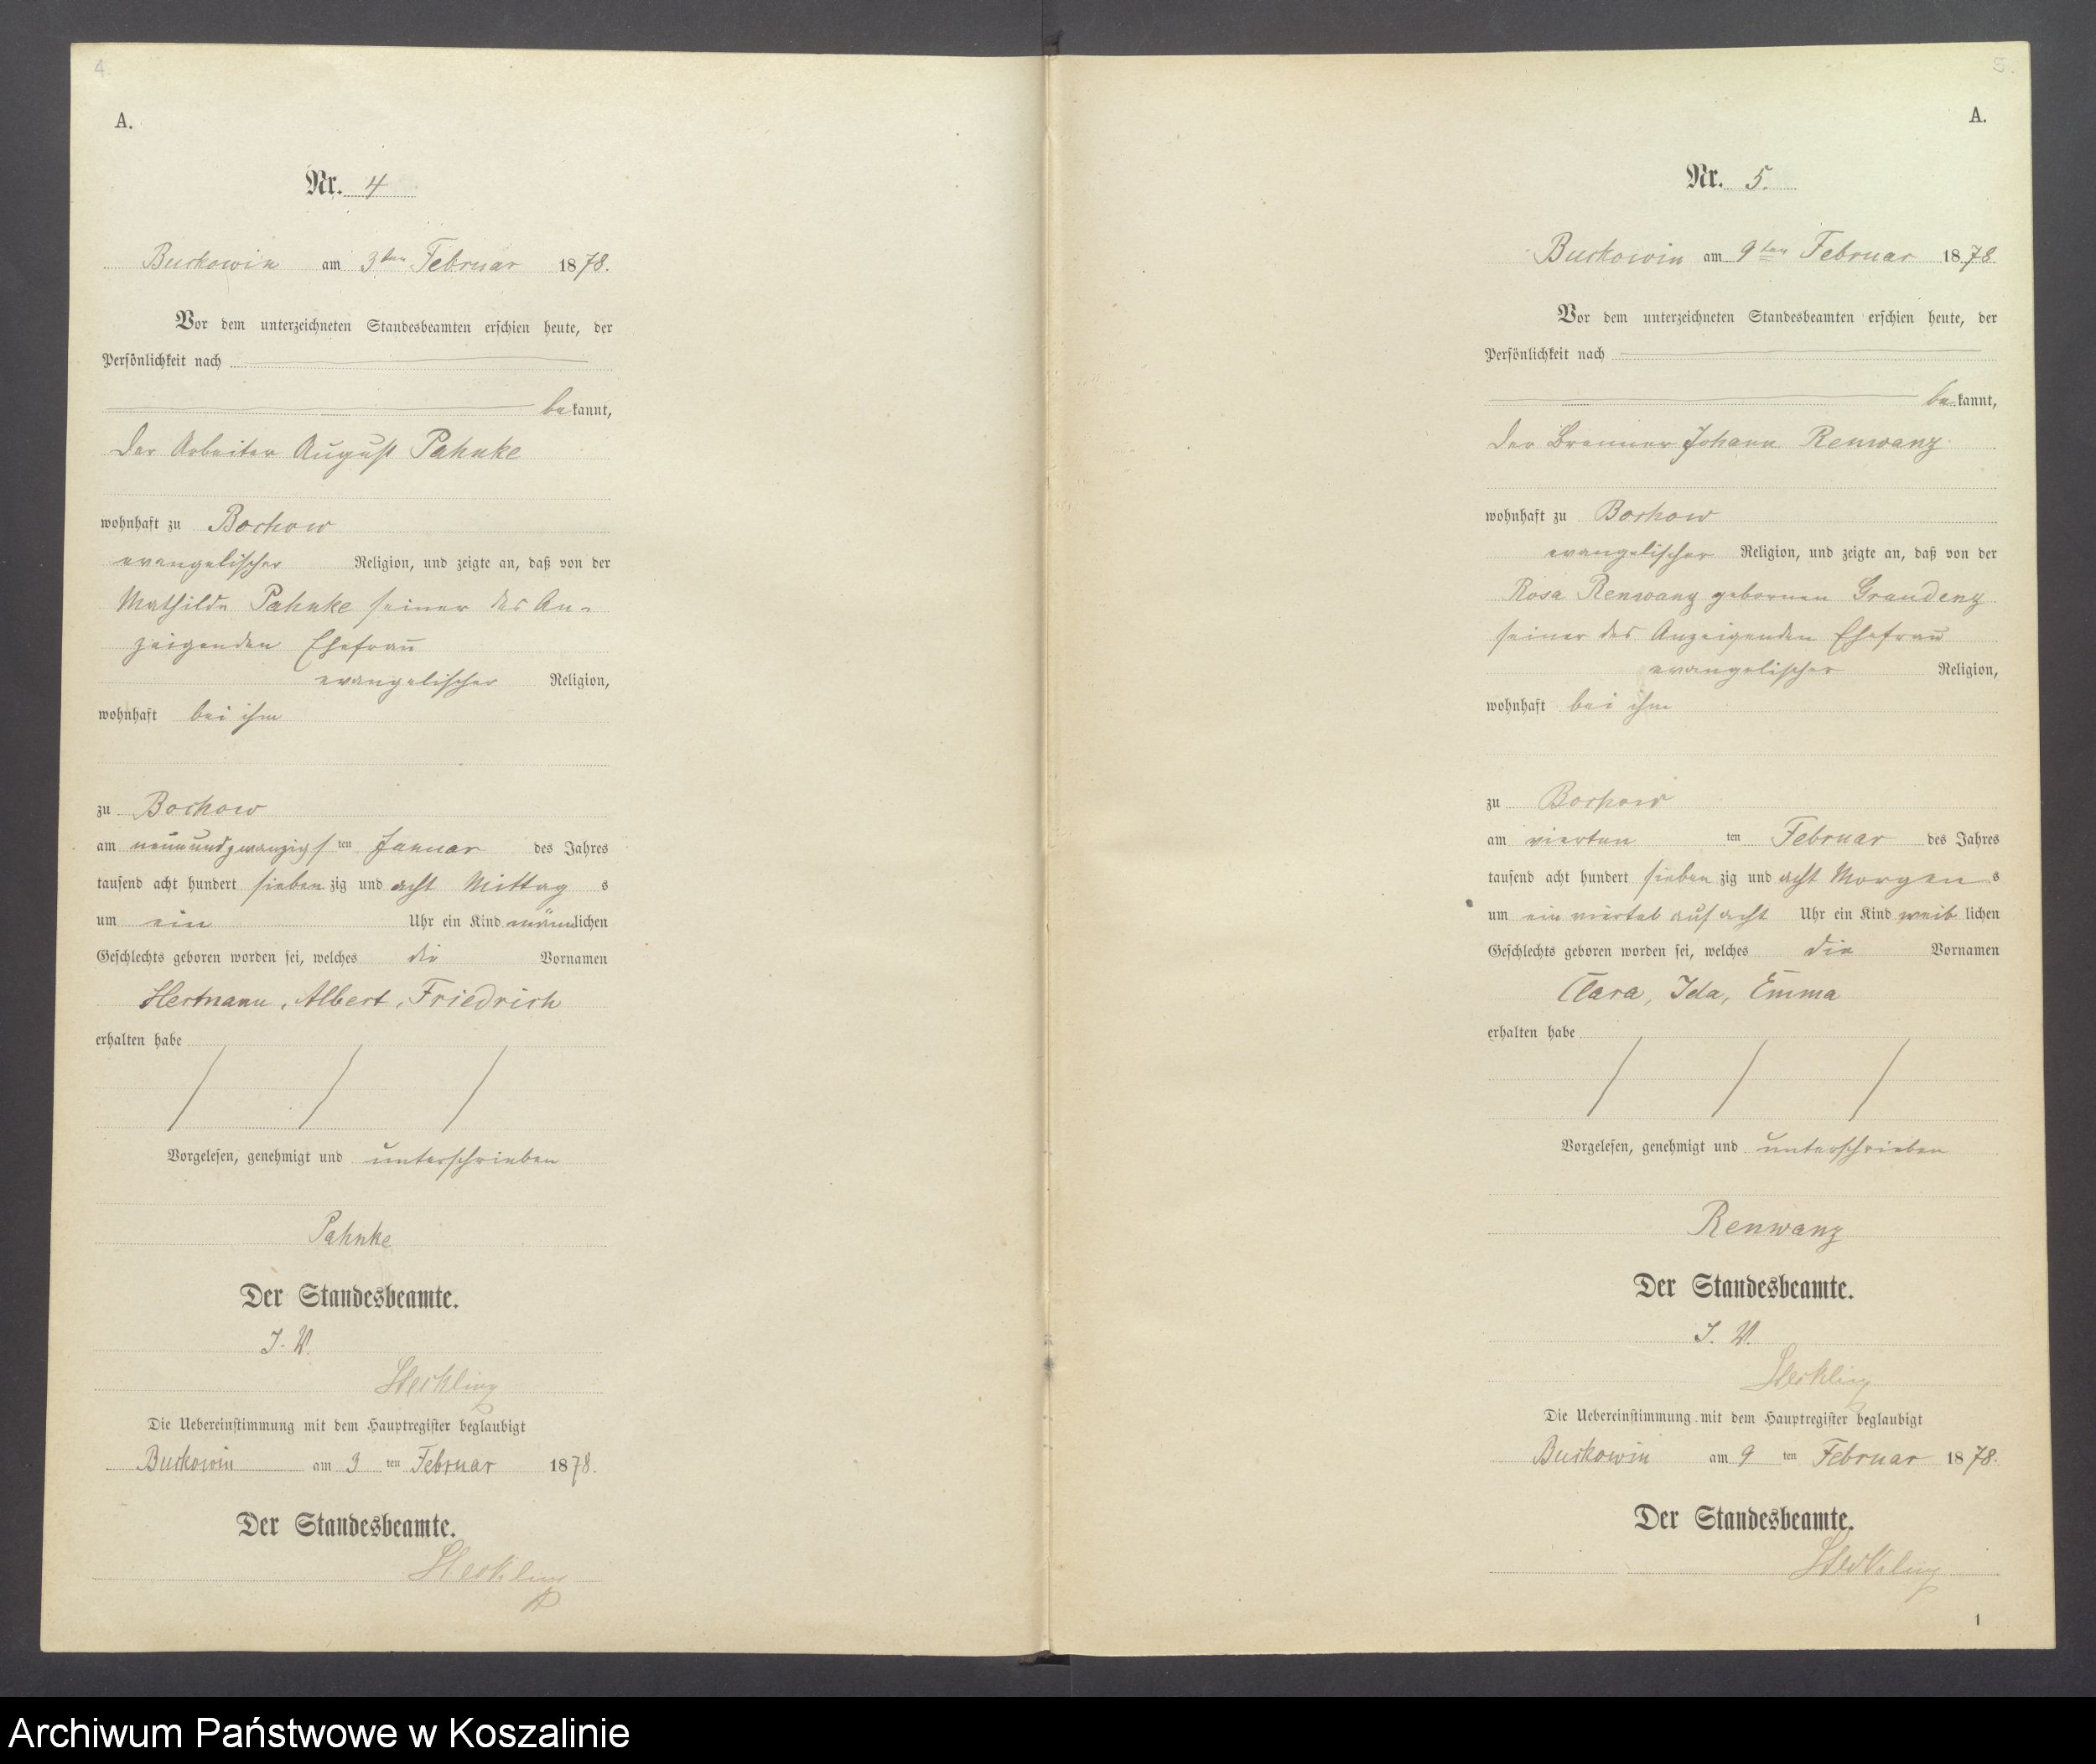 4
A.
Nr. 4
Buckowin am 3ten Februar 1878.
Vor dem unterzeichneten Standesbeamten erschien heute, der
Persönlichkeit nach
bekannt,
der Arbeiter August Pahnke
wohnhaft zu Bochow
evangelischer Religion, und zeigte an, daß von der
Mathilde Pahnke seiner des An-
zeigenden Ehefrau
evangelischer Religion,
wohnhaft bei ihm
zu Bochow
am neunundzwanzigsten Januar des Jahres
tausend acht hundert siebenzig und acht Mittags
um ein Uhr ein Kind männlichen
Geschlechts geboren worden sei, welches die Vornamen
Hermann, Albert, Friedrich
erhalten habe
Vorgelesen, genehmigt und unterschrieben
Pahnke
Der Standesbeamte.
I. V.
Die Uebereinstimmung mit dem Hauptregister beglaubigt
Buckowin am 3 ten Februar 1878.
Der Standesbeamte.
5.
A.
Nr. 5.
Buckowin am 9ten Februar 1878
Vor dem unterzeichneten Standesbeamten erschien heute, der
Persönlichkeit nach
bekannt,
der Brenner Johann Renwanz
wohnhaft zu Bochow
evangelischer Religion, und zeigte an, daß von der
Rosa Renwanz gebornen Graudenz
seiner des Anzeigenden Ehefrau
evangelischer Religion,
wohnhaft bei ihm
zu Bochow
am vierten ten Februar des Jahres
tausend acht hundert siebenzig und acht Morgens
um ein viertel auf acht Uhr ein Kind weiblichen
Geschlechts geboren worden sei, welches die Vornamen
Clara, Ida, Emma
erhalten habe
Vorgelesen, genehmigt und unterschrieben
Renwanz
Der Standesbeamte.
I. V.
Die Uebereinstimmung mit dem Hauptregister beglaubigt
Buckowin am 9 ten Februar 1878.
Der Standesbeamte.
1
Archiwum Państwowe w Koszalinie